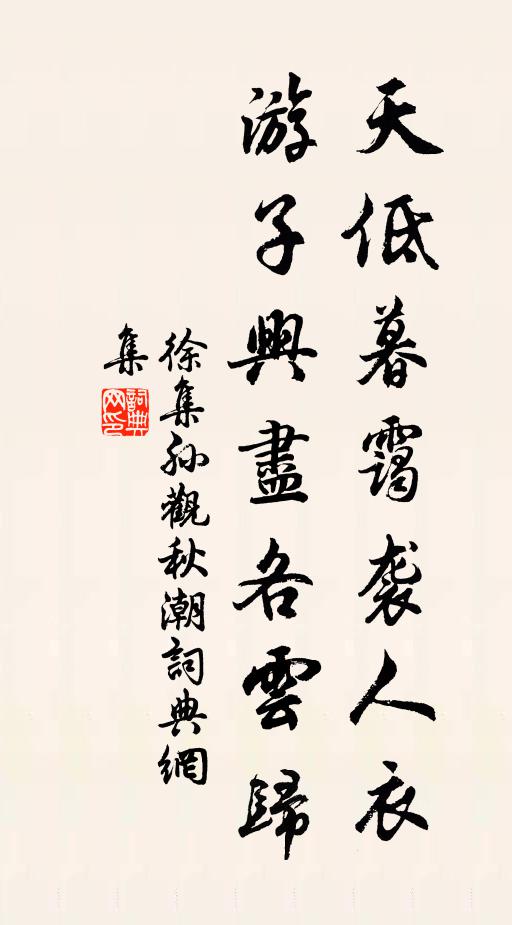 天低暮靄袭人衣
游子興盡各雲歸
徐集孙觀秋潮詞典網
集
詞典
网印